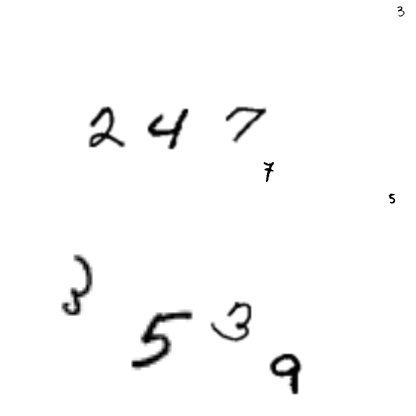 3
2 4 7
7
5
3
5 3
9